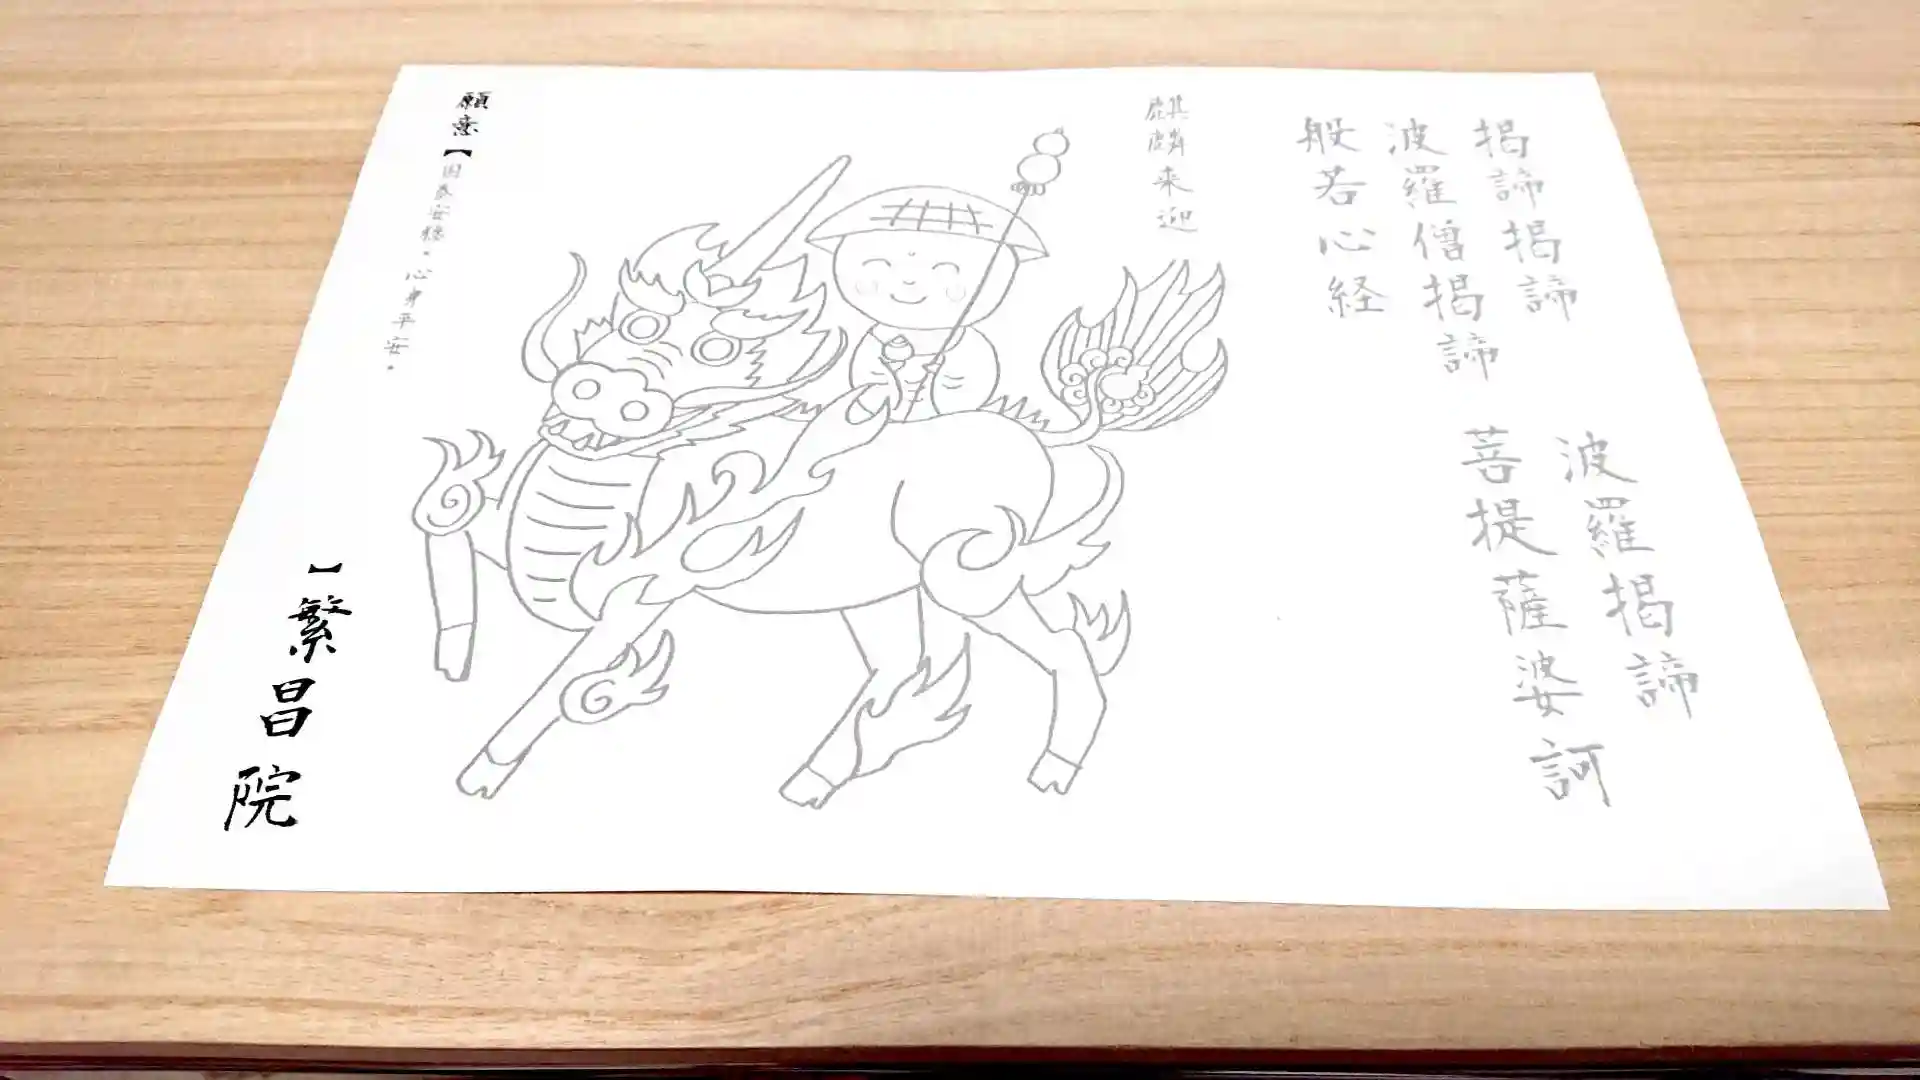 掲諦掲諦　波羅掲諦
波羅僧掲諦　菩提薩婆訶
般若心経
麒麟来迎
願意【国泰安穏。心身平安。】繁昌院